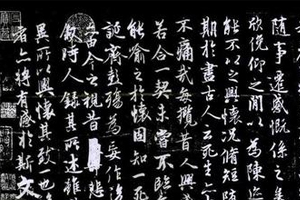 隨事遷感慨係之
欣俛仰之間以為陳迹
能不以之興懷況脩短隨
期於盡古人云死生亦
不痛哉每攬昔人興
若合一契未嘗不臨文
能喻之於懷固知一死
誕齊彭殤為妄作後
由今之視昔悲
敘時人錄其所述雖
異所以興懷其致一也
者亦將有感於斯文